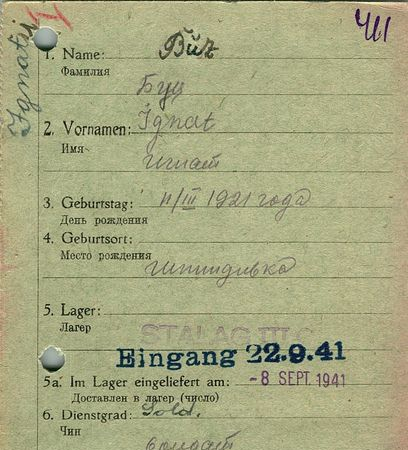 Ignatij
1. Name:
Фамилия
Буц
2. Vornamen: Ignat
Имя
Игнат
3. Geburtstag: 11/III 1921 года
День рождения
4. Geburtsort:
Место рождения
5. Lager:
Лагер
STALAG III C
Eingang 22.9.41
5a. Im Lager eingeliefert am: -8 SEPT. 1941
Доставлен в лагер (число)
6. Dienstgrad: Sold.
Чин
солдат